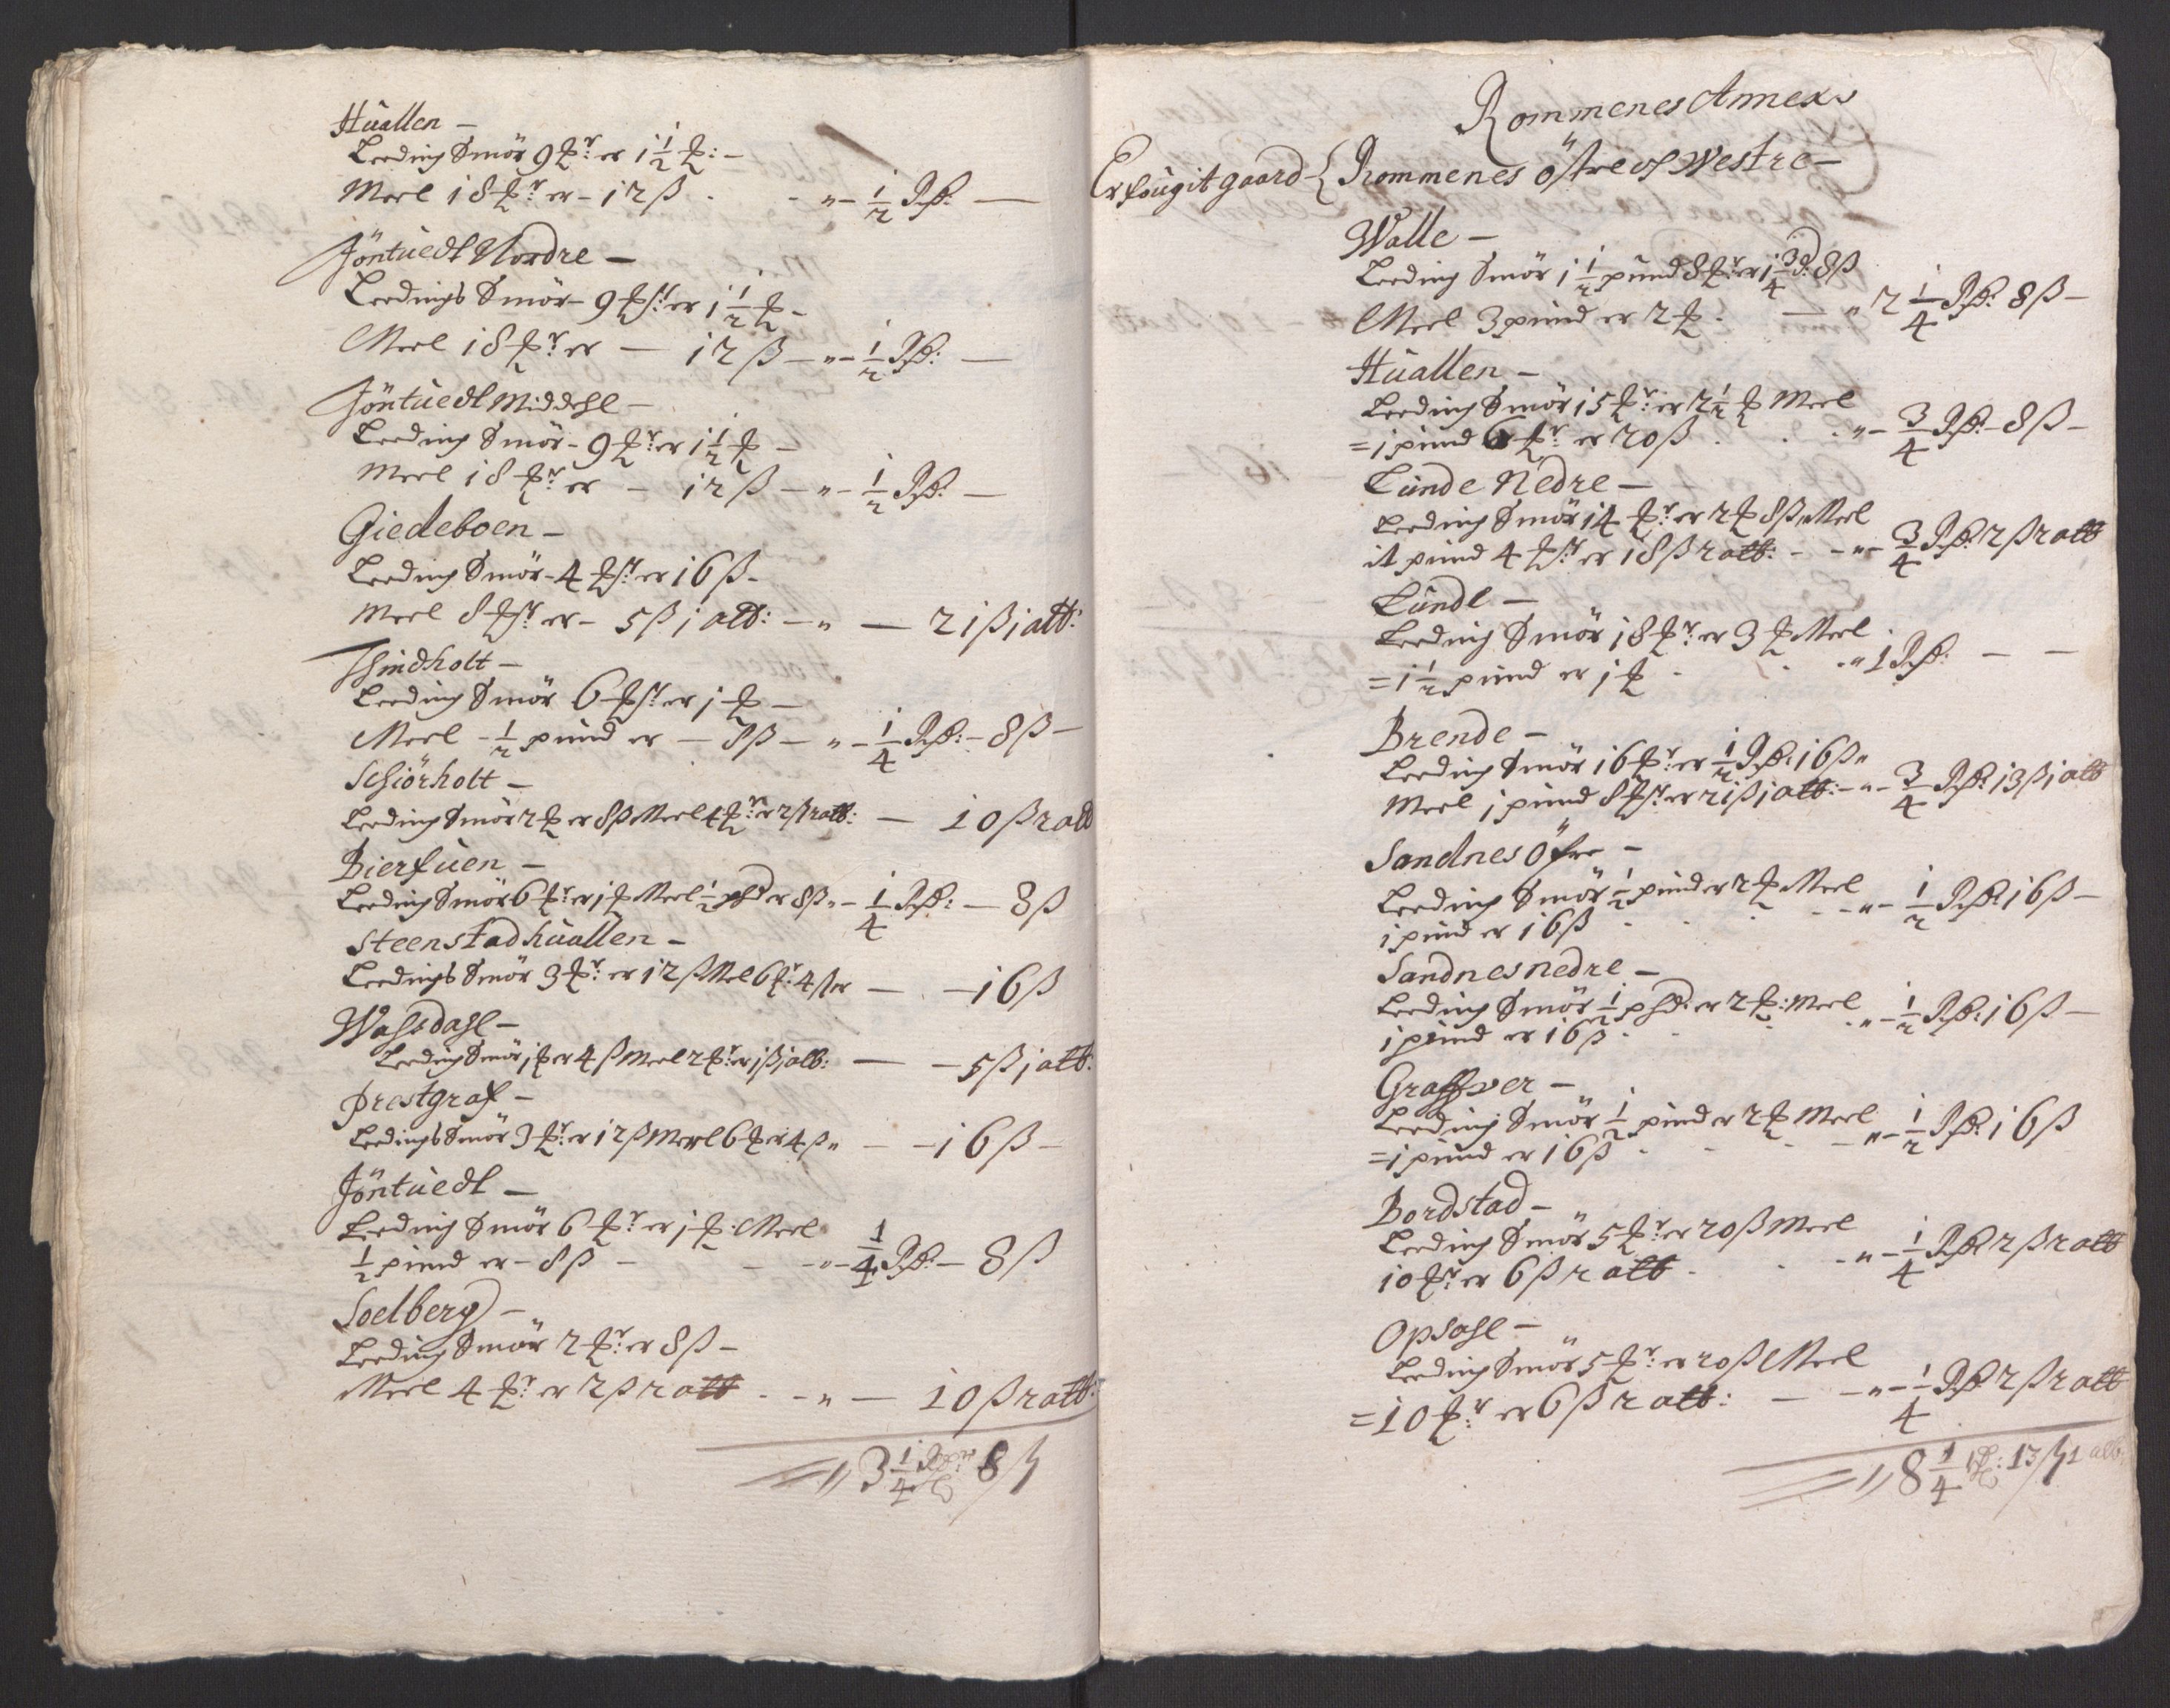 Huallen –
Leeding Smör 9 ℔r: er 1 1/2 ℔: –
Meel 18 ℔r: er – 12 ß . - „ – 1/2 Rd: —
Jöntuedt Nordre –
Leedings Smör – 9 ℔r: er 1 1/2 ℔ –
Meel 18 ℔r: er — 12 ß – „ – 1/2 Rd: —
Jöntuedt Middehl –
Leeding Smör – 9 ℔r: er 1 1/2 ℔ –
Meel 18 ℔r: er – 12 ß – „ – 1/2 Rd: —
Giedeboen –
Leeding Smör – 4 ℔r: er 16 ß –
Meel 8 ℔r: er – 5 ß 1 alb: – „ — 21 ß 1 alb:
Thindholt –
Leeding Smör 6 ℔r: er 1 ℔ –
Meel – 1/2 pund er – 8 ß – „ – 1/4 Rd: – 8 ß –
Schiörholt –
Leeding Smör 2 ℔ er 8 ß Meel 4 ℔r: er 2 ß 2 alb: — 10 ß 2 alb
Bierfuen –
Leeding Smör 6 ℔r: er 1 ℔ Meel 1/2 pd er 8 ß „ – 1/4 Rd: – 8 ß
Steenstadhuallen –
Leedings Smör 3 ℔r: er 12 ß Mel 6 ℔r: 4 ß er — – 16 ß
Wahsdahl –
Leeding Smör 1 ℔ er 4 ß Meel 2 ℔r: er 1 ß 1 alb: — – 5 ß 1 alb:
Prestgraf –
Leedings Smör 3 ℔r: er 12 ß Meel 6 ℔ er 4 ß „ – – 16 ß –
Jöntuedt –
Leeding Smör 6 ℔r: er 1 ℔: Meel
1/2 pund er – 8 ß – - - „ – 1/4 Rd: – 8 ß
Soelberg –
Leeding Smör 2 ℔r: er 8 ß –
Meel 4 ℔r: er 2 ß 2 alb . - „ — 10 ß 2 alb:
3 1/4 Rdr 8 ß
Rommenes Annex
Er fougitgaard { Rommenes östre og Westre –
Walle –
Leeding Smör 1 1/2 pund 8 ℔r: er 1 3/4 Rd: 8 ß
Meel 3 pund er 2 ℔ . — „ 2 1/4 Rd: 8 ß –
Huallen –
Leeding Smör 15 ℔r: er 2 1/2 ℔ Meel
= 1 pund 6 ℔r: er 20 ß . . . „ – 3/4 Rd: – 8 ß –
Lunde Nedre –
Leeding Smör 14 ℔r: er 2 ℔ 8 ß „ Meel
it pund 4 ℔r: er 18 ß 2 alb: - - „ – 3/4 Rd: 2 ß 2 alb
Lunde –
Leeding Smör 18 ℔r: er 3 ℔ Meel
= 1 1/2 pund er 1 ℔ . . . „ 1 Rd: – –
Brende –
Leeding Smör 16 ℔r: er 1/2 Rd: 16 ß „
Meel 1 pund 8 ℔r: er 21 ß 1 alb: – „ – 3/4 Rd: 13 ß 1 alb
Sandnes Öfre –
Leeding Smör 1/2 pund er 2 ℔ Meel
1 pund er 16 ß . . . - „ – 1/2 Rd: 16 ß –
Sandnes nedre –
Leeding Smör 1/2 pd: er 2 ℔: Meel
1 pund er 16 ß . . . „ – 1/2 Rd: 16 ß –
Graffver –
Leeding Smör 1/2 pund er 2 ℔ Meel
= 1 pund er 16 ß . . . – „ – 1/2 Rd: 16 ß
Bordstad –
Leeding Smör 5 ℔r: er 20 ß Meel
10 ℔r: er 6 ß 2 alb . . - „ – 1/4 Rd: 2 ß 2 alb
Opsahl –
Leeding Smör 5 ℔r: er 20 ß Meel
= 10 ℔r: er 6 ß 2 alb: – – „ – 1/4 Rd: 2 ß 2 alb
8 1/4 Rd: 13 ß 1 alb